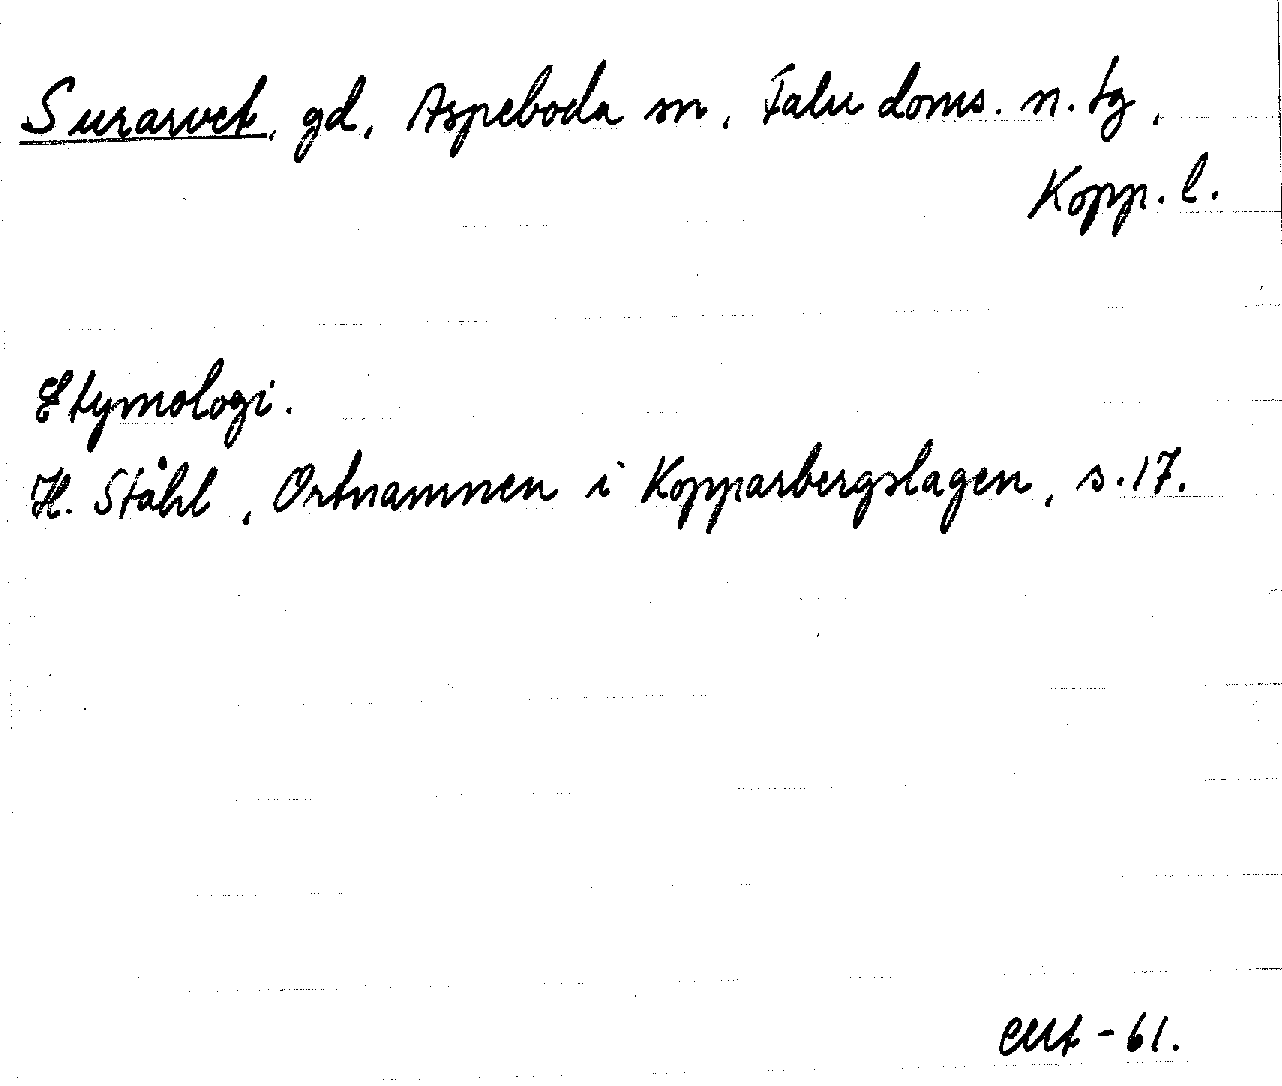 Surarvet, gd, Aspeboda sn, Falu doms. n. tg,
Kopp. l.
Etymologi.
H. Ståhl, Ortnamnen i Kopparbergslagen, s. 17.
-61.